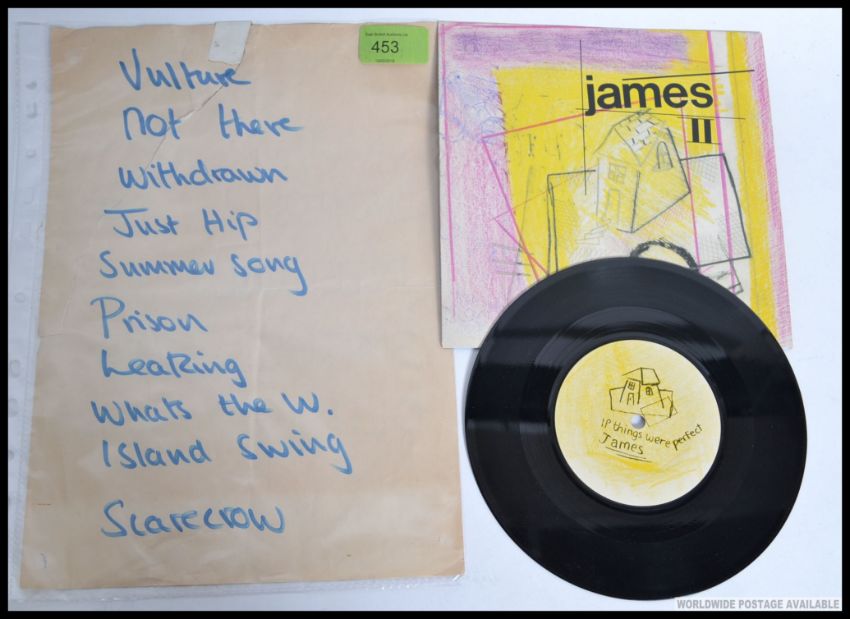 Vulture
Not there
withdrawn
Just Hip
Summer song
Prison
Leaking
Whats the W.
Island Swing
Scarecrow
453
james
II
If things were perfect
James
WORLDWIDE POSTAGE AVAILABLE